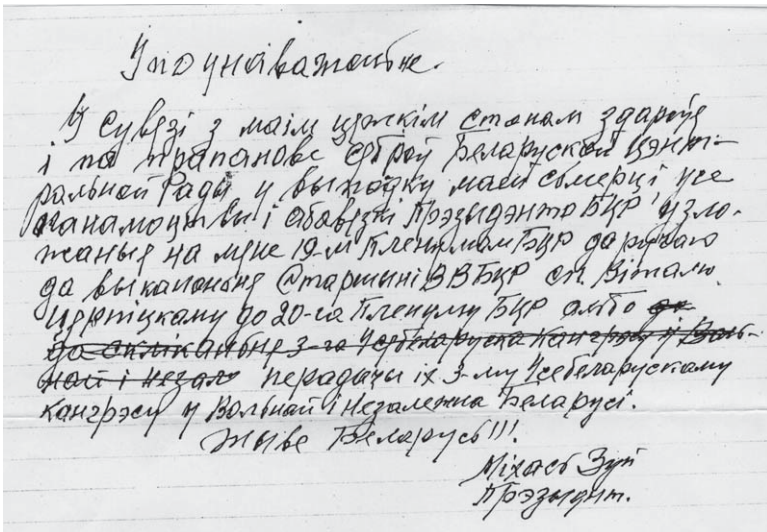 Упаўнаважаньне.
У сувязі з маім цяжкім станам здароўя
і па прапанове сяброў Беларускай Цэнт-
ральнай Рады у выпадку маей сьмерці усе
паўнамоцтвы і абавязкі Прэзыдэнта БЦР узло-
жаныя на мяне 19-м Пленумам БЦР даручаю
да выкананьня Старшыні ВВ БЦР сп. Віталю
Цярпіцкаму да 20-га Пленуму БЦР альбо да
да скліканьня 3-га Усебеларуска Кангрэсу у Воль-
най і незал перадачы іх 3-му Усебеларускаму
кангрэсу у Вольнай і Незалежна Беларусі.
Жыве Беларусь!!!
Міхась Зуй
Прэзыдэнт.